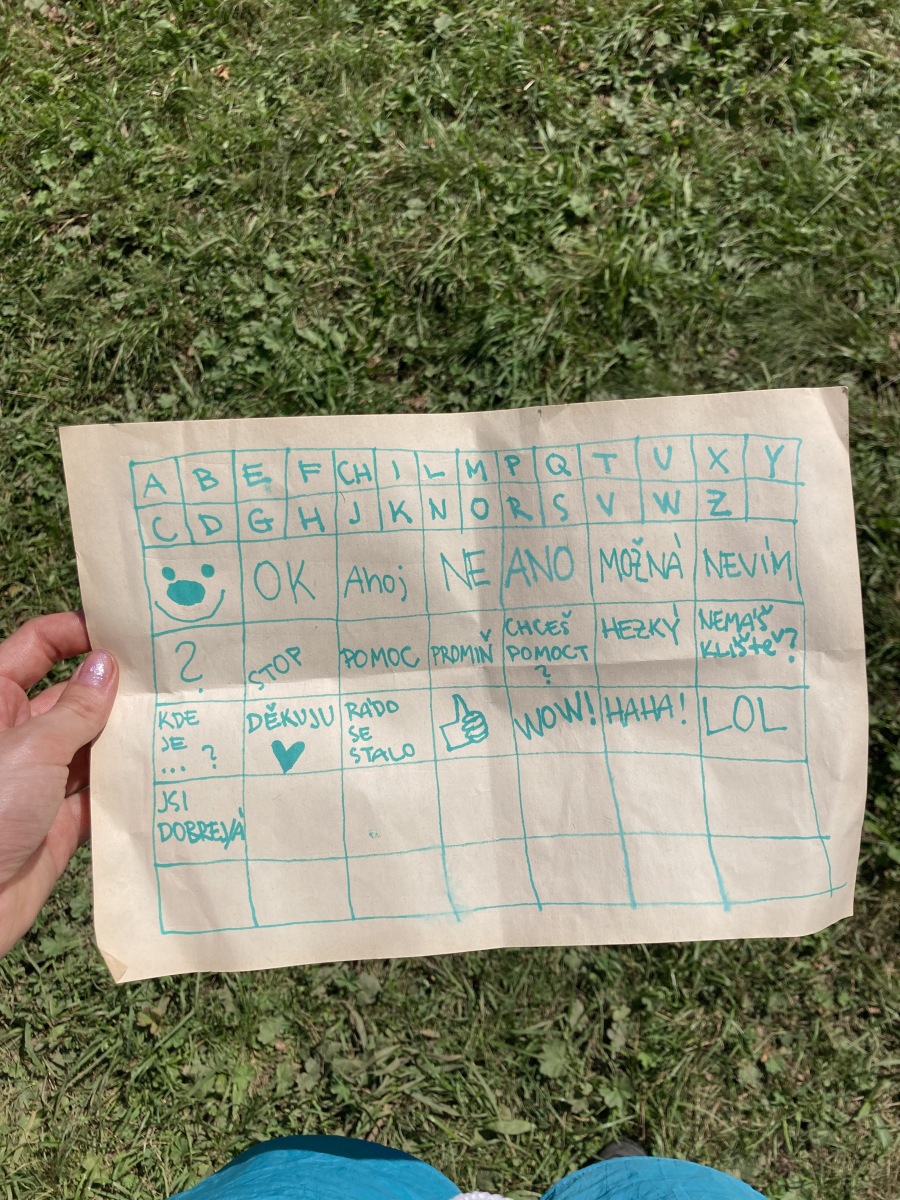 A B E F CH I L M P Q T U X Y
C D G H J K N O R S V W Z
OK Ahoj NE ANO MOŽNÁ NEVÍM
?
STOP
POMOC
PROMIŇ
CHCEŠ
POMOCT
?
HEZKÝ
NEMÁŠ
KLÍŠTě?
KDE
JE
... ?
DĚKUJU
RÁDO
SE
STALO
WOW!
HAHA!
LOL
JSI
DOBREJ/Á